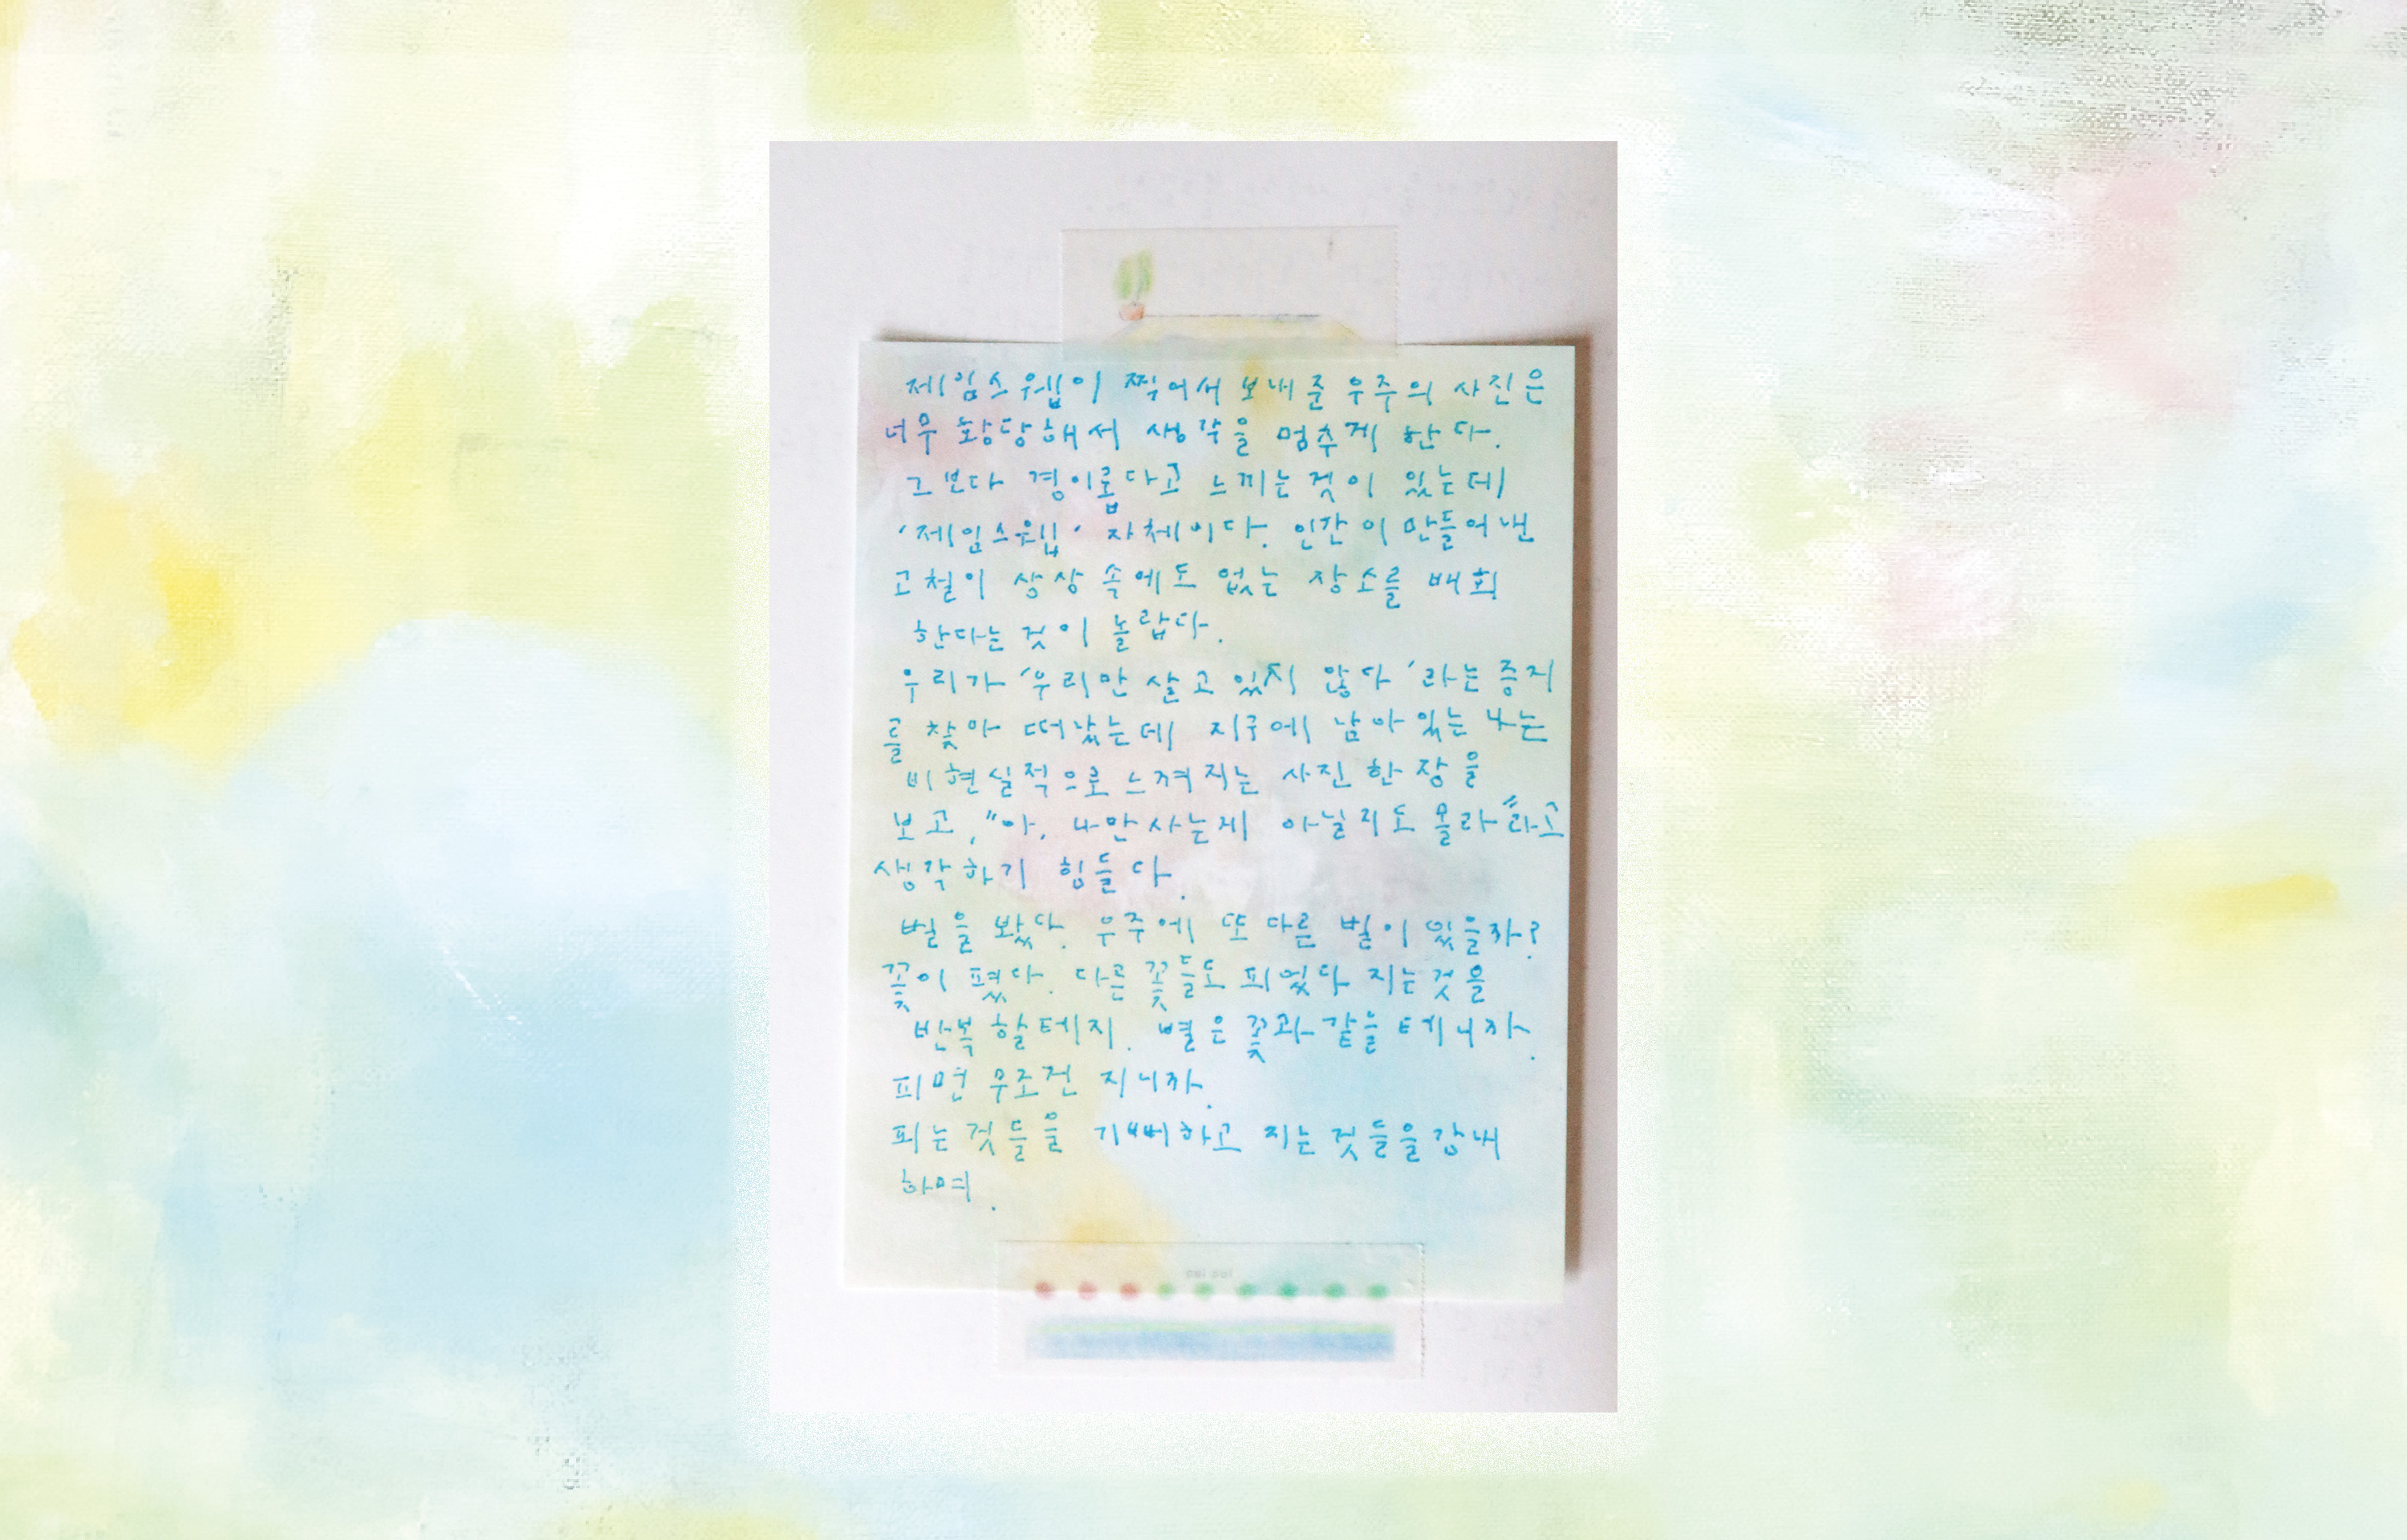 제임스웹이 찍어서 보내준 우주의 사진은
너무 황당해서 생각을 멈추게 한다.
그보다 경이롭다고 느끼는 것이 있는데
'제임스웹' 자체이다. 인간이 만들어낸
고철이 상상 속에도 없는 장소를 배회
한다는 것이 놀랍다.
우리가 '우리만 살고 있지 않다'라는 증거
를 찾아 떠났는데 지구에 남아있는 나는
비현실적으로 느껴지는 사진 한 장을
보고, "아, 나만 사는게 아닐지도 몰라"라고
생각하기 힘들다.
별을 봤다. 우주에 또 다른 별이 있을까?
꽃이 폈다. 다른 꽃들도 피었다 지는것을
반복할테지. 별은 꽃과 같을테니까.
피면 무조건 지니까.
피는것들을 기뻐하고 지는것들을 감내
하며.